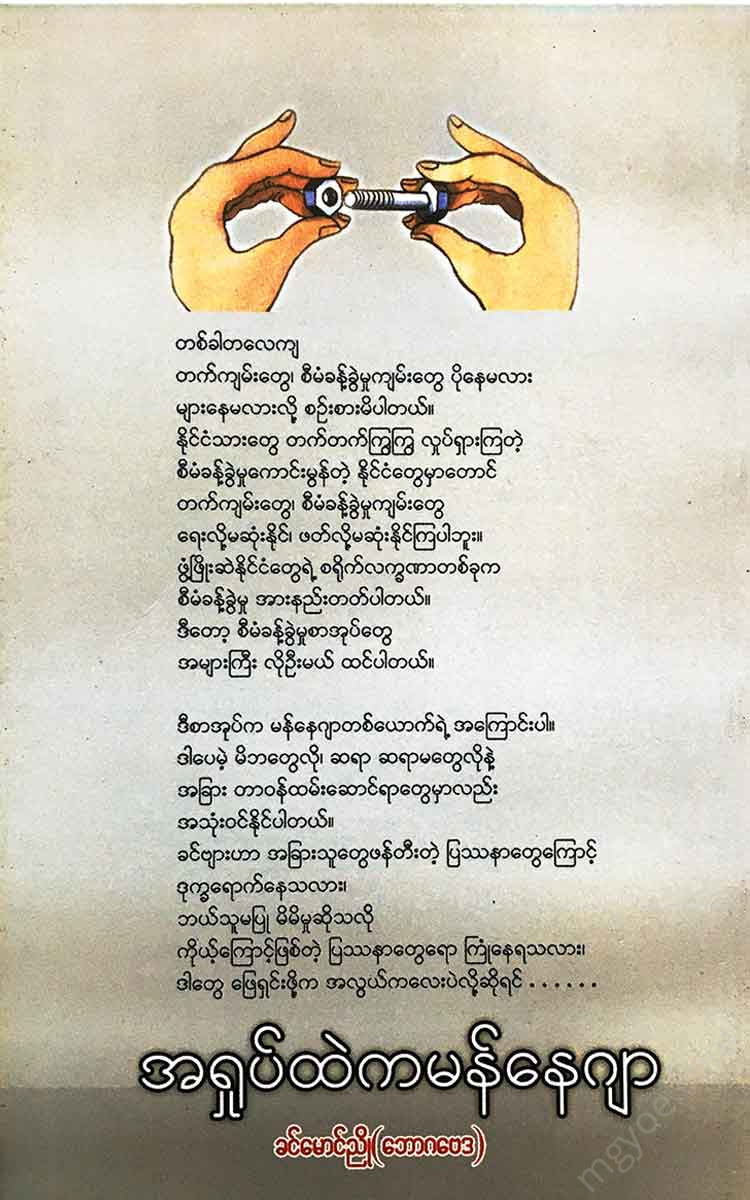 တစ်ခါတလေကျ
တက်ကျမ်းတွေ၊ စီမံခန့်ခွဲမှုကျမ်းတွေ ပိုနေမလား
များနေမလားလို့ စဉ်းစားမိပါတယ်။
နိုင်ငံသားတွေ တက်တက်ကြွကြွ လှုပ်ရှားကြတဲ့
စီမံခန့်ခွဲမှုကောင်းမွန်တဲ့ နိုင်ငံတွေမှာတောင်
တက်ကျမ်းတွေ၊ စီမံခန့်ခွဲမှုကျမ်းတွေ
ရေးလို့မဆုံးနိုင်၊ ဖတ်လို့မဆုံးနိုင်ကြပါဘူး။
ဖွံ့ဖြိုးဆဲနိုင်ငံတွေရဲ့ စရိုက်လက္ခဏာတစ်ခုက
စီမံခန့်ခွဲမှု အားနည်းတတ်ပါတယ်။
ဒီတော့ စီမံခန့်ခွဲမှုစာအုပ်တွေ
အများကြီး လိုဦးမယ် ထင်ပါတယ်။
ဒီစာအုပ်က မန်နေဂျာတစ်ယောက်ရဲ့ အကြောင်းပါ။
ဒါပေမဲ့ မိဘတွေလို၊ ဆရာ ဆရာမတွေလိုနဲ့
အခြား တာဝန်ထမ်းဆောင်ရာတွေမှာလည်း
အသုံးဝင်နိုင်ပါတယ်။
ခင်ဗျားဟာ အခြားသူတွေဖန်တီးတဲ့ ပြဿနာတွေကြောင့်
ဒုက္ခရောက်နေသလား၊
ဘယ်သူမပြု မိမိမှုဆိုသလို
ကိုယ့်ကြောင့်ဖြစ်တဲ့ ပြဿနာတွေရော ကြုံနေရသလား၊
ဒါတွေ ဖြေရှင်းဖို့က အလွယ်ကလေးပဲလို့ဆိုရင် ......
အရှုပ်ထဲကမန်နေဂျာ
ခင်မောင်ညို(ဘောဂဗေဒ)